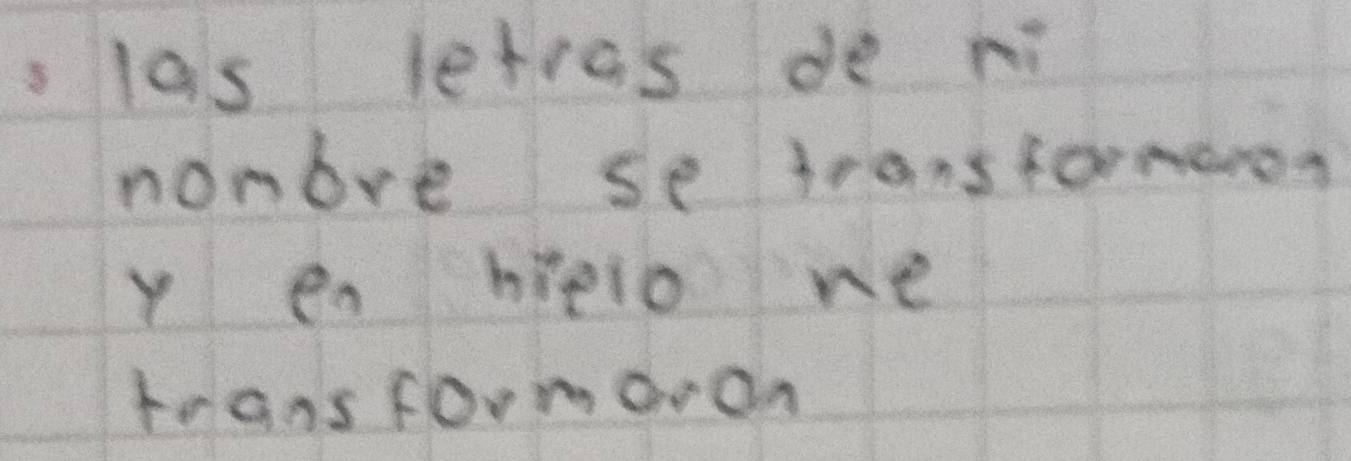 las letras de mi
nombre se transformaron
y en hielo me
transformaron